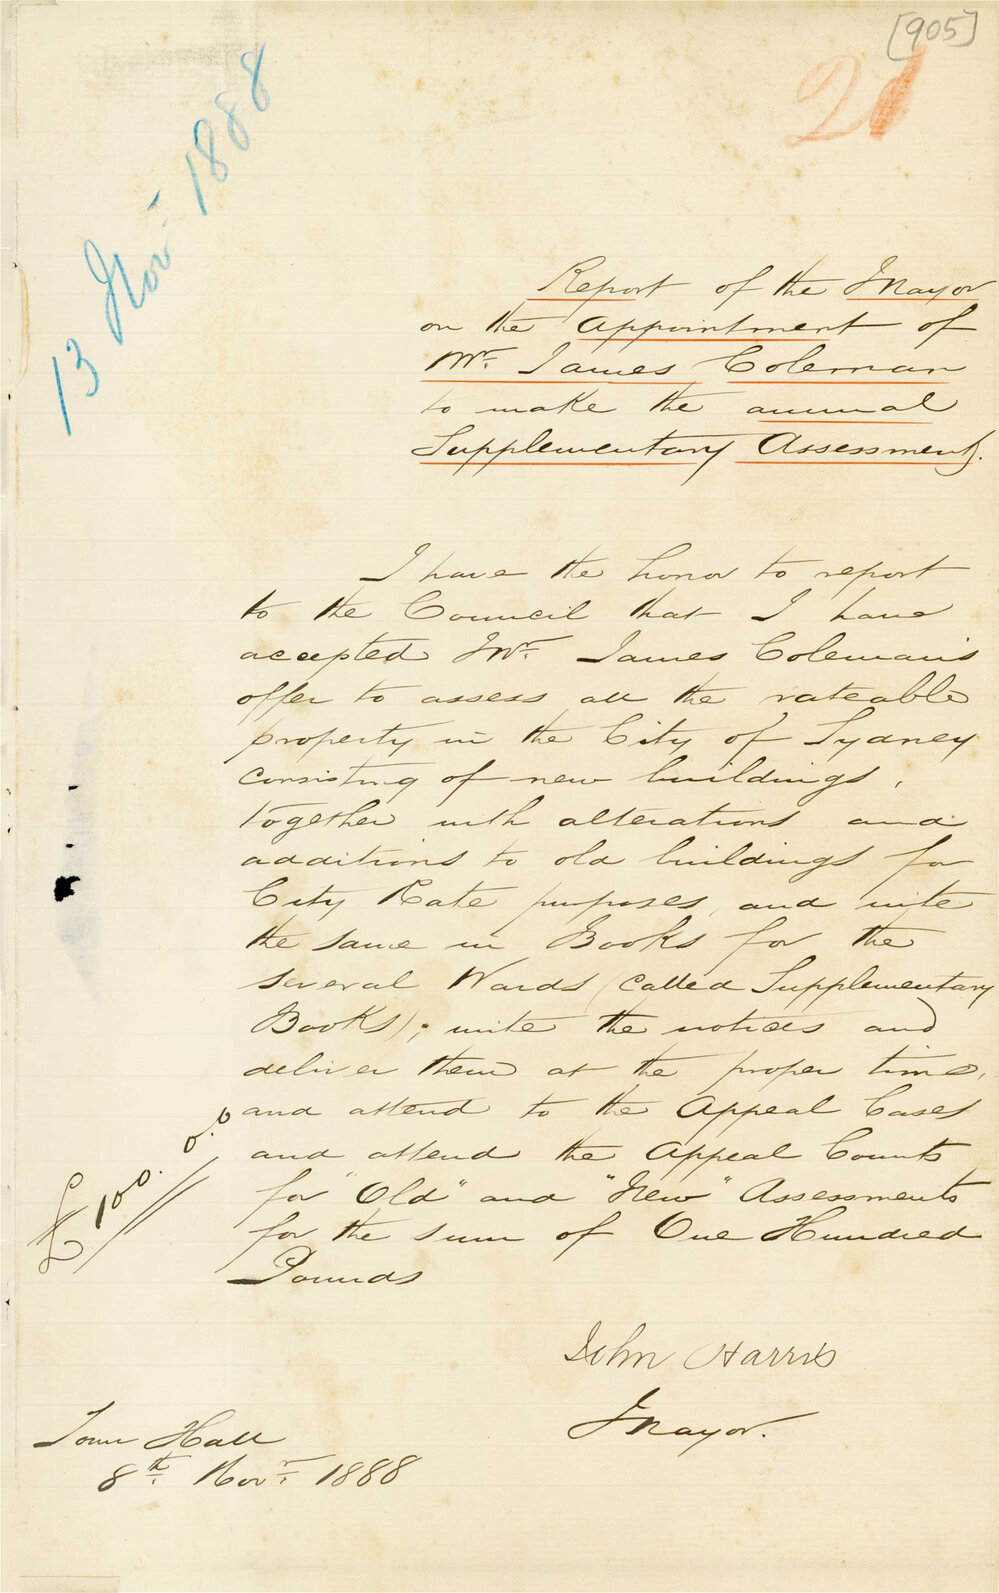 [905]
21
13 Nov.r 1888
Report of the Mayor
on the Appointment of
Mr. James Coleman
to make the annual
Supplementary Assessment.
I have the honor to report
to the Council that I have
accepted Mr. James Coleman's
offer to assess all the rateable
property in the City of Sydney
consisting of new buildings,
together with alterations and
additions to old buildings for
City Rate purposes, and write
the same in Books for the
several Wards (called Supplementary
Books); write the notices and
deliver them at the proper time,
and attend to the Appeal Cases
and attend the Appeal Courts
for "Old" and "New" Assessments
for the sum of One Hundred
Pounds
£100.0.0
John Harris
Mayor.
Town Hall
8th. Nov.r 1888